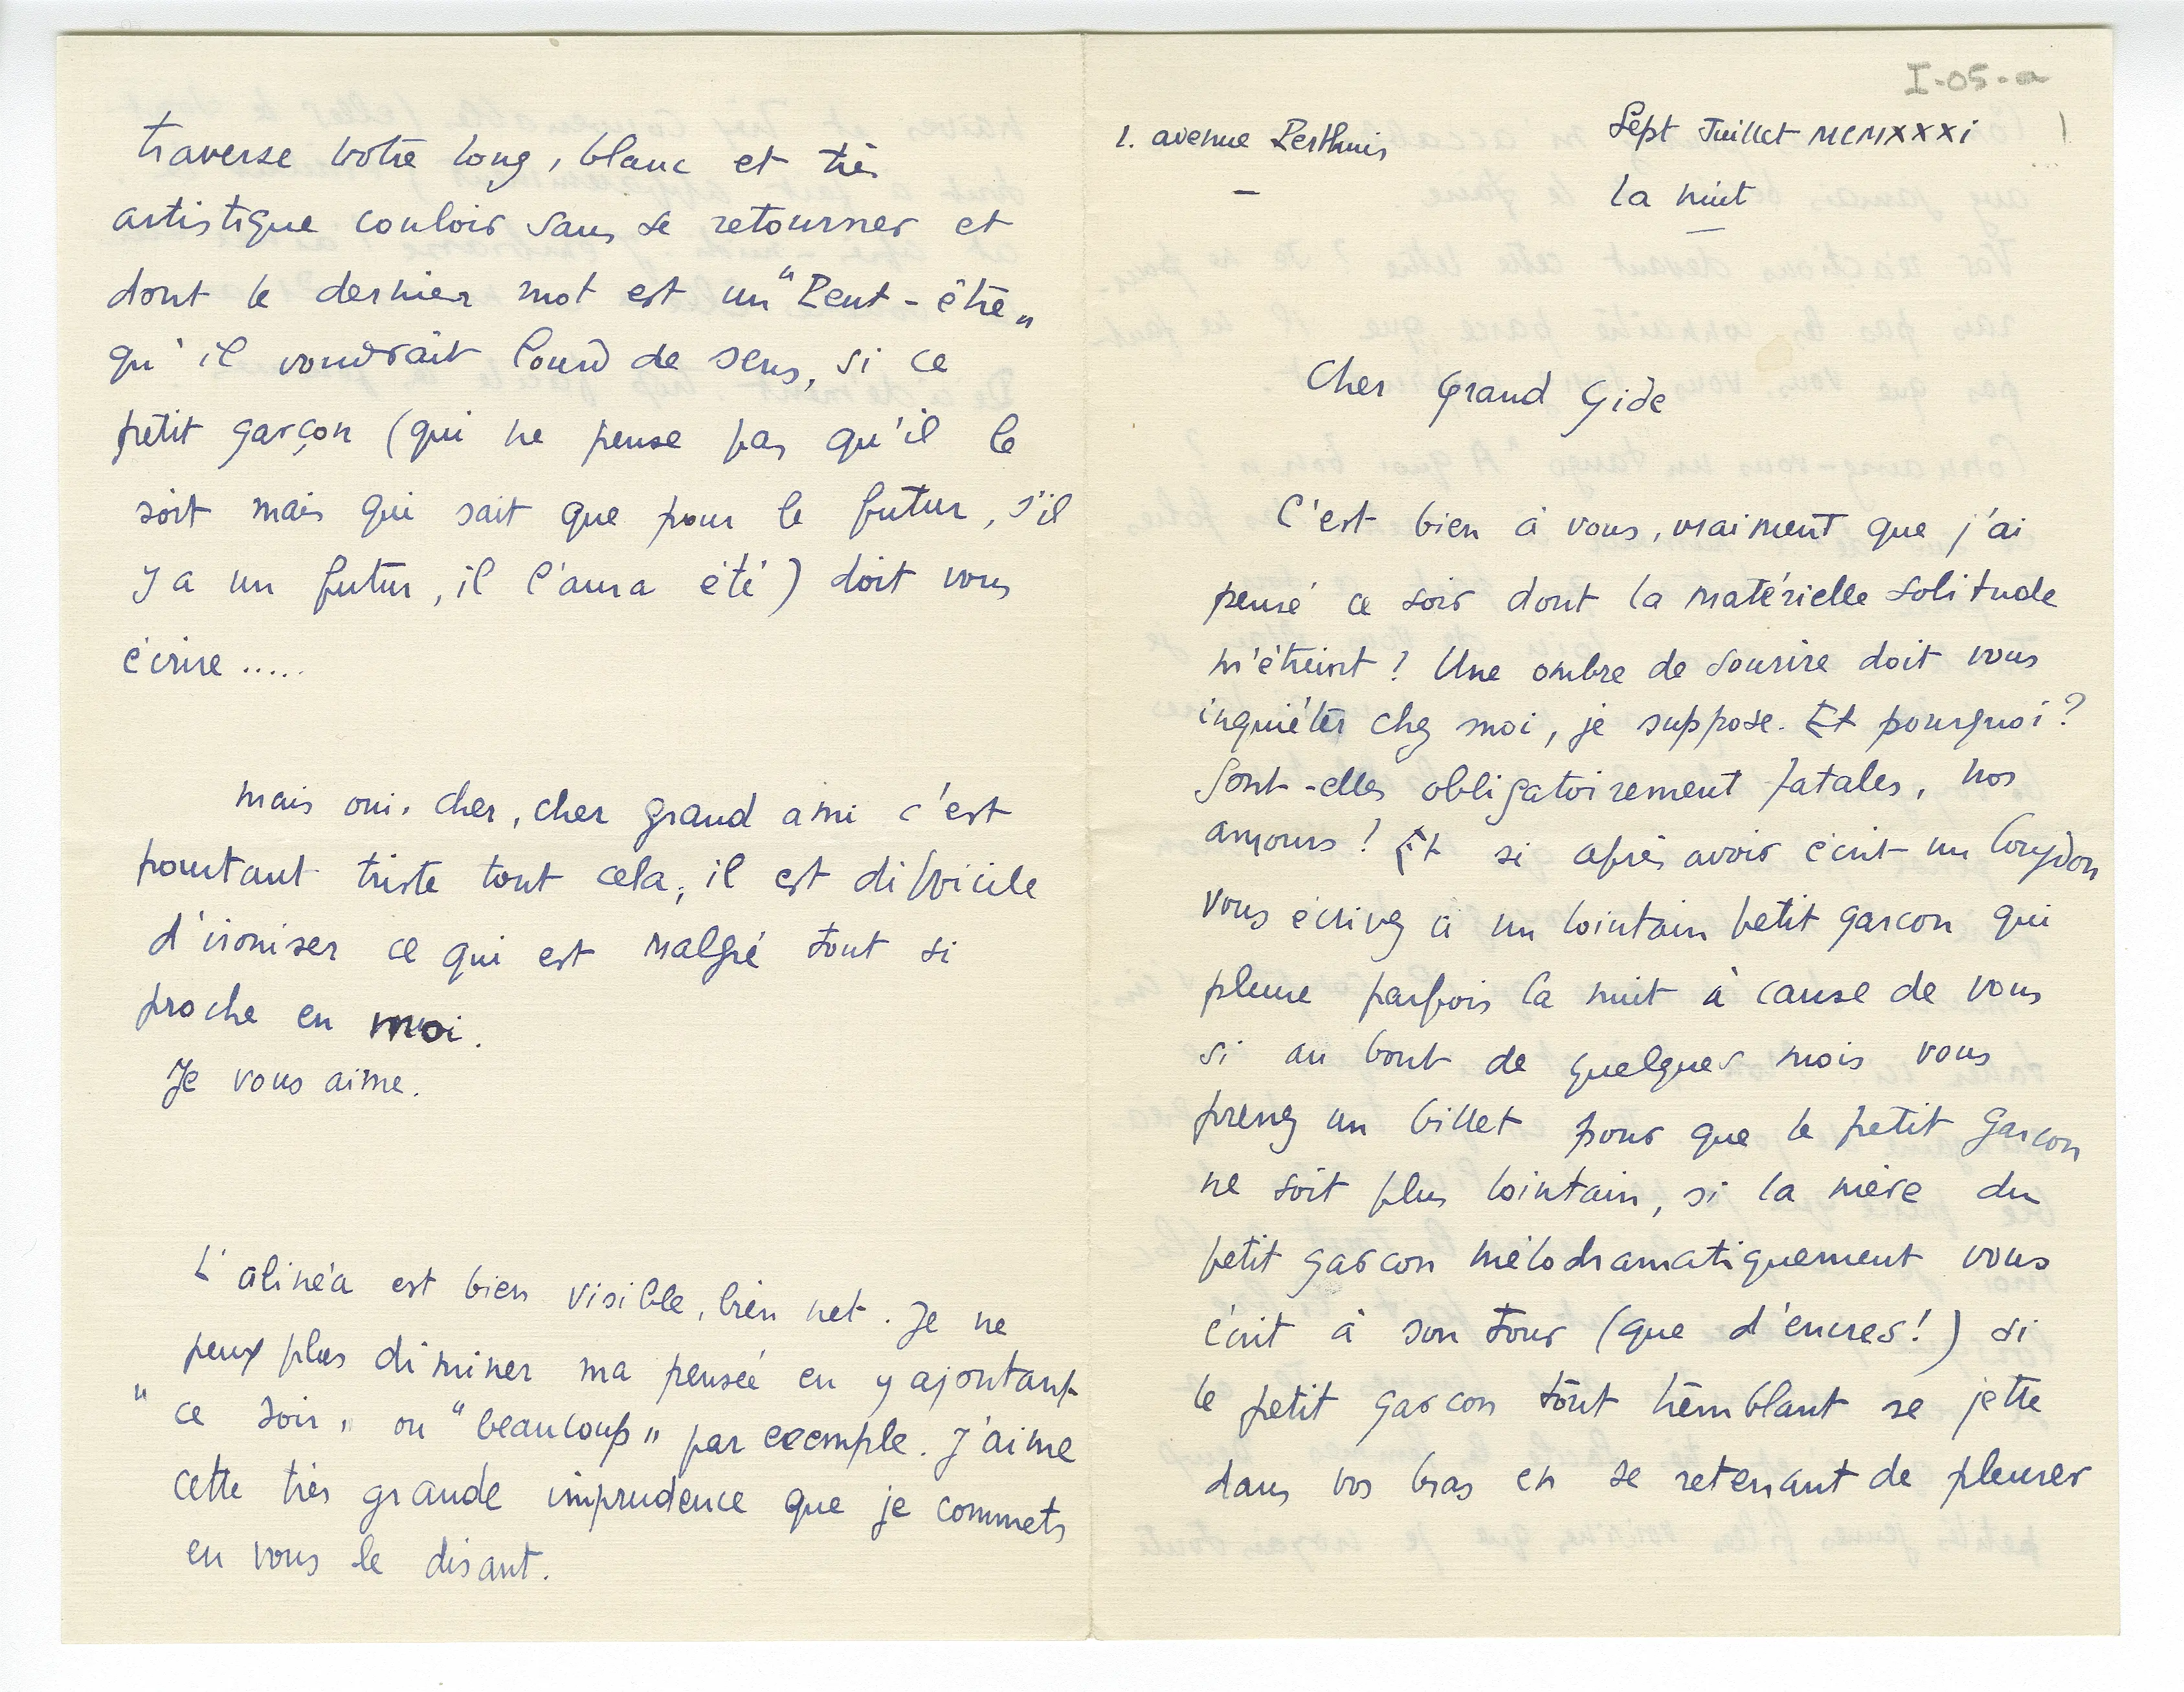 I-05-a
1. avenue Perthuis
Sept Juillet MCMXXXI
la nuit
Cher Grand Gide
C'est bien à vous, vraiment que j'ai
pensé ce soir dont la matérielle solitude
m'étreint ! Une ombre de sourire doit vous
inquiéter chez moi, je suppose. Et pourquoi ?
Sont-elles obligatoirement fatales, nos
amours ! Et si après avoir écrit un Corydon
vous écrivez à un lointain petit garcon qui
pleure parfois la nuit à cause de vous
si au bout de quelques mois vous
prenez un billet pour que le petit garcon
ne soit plus lointain, si la mère du
petit garcon mélodramatiquement vous
écrit à son tour (que d'encres!) si
le petit garcon tout tremblant se jette
dans vos bras en se retenant de pleurer
traverse votre long, blanc et très
artistique couloir sans se retourner et
dont le dernier mot est un "Peut-être"
qu'il voudrait lourd de sens, si ce
petit garçon (qui ne pense pas qu'il le
soit mais qui sait que pour le futur, s'il
y a un futur, il l'aura été) doit vous
écrire .....
mais oui, cher, cher grand ami c'est
pourtant triste tout cela, il est difficile
d'ironiser ce qui est malgré tout si
proche en moi.
Je vous aime.
L'alinéa est bien visible, bien net. Je ne
peux plus diminer ma pensée en y ajoutant
"ce soir" ou "beaucoup" par exemple. J'aime
cette très grande imprudence que je commets
en vous le disant.